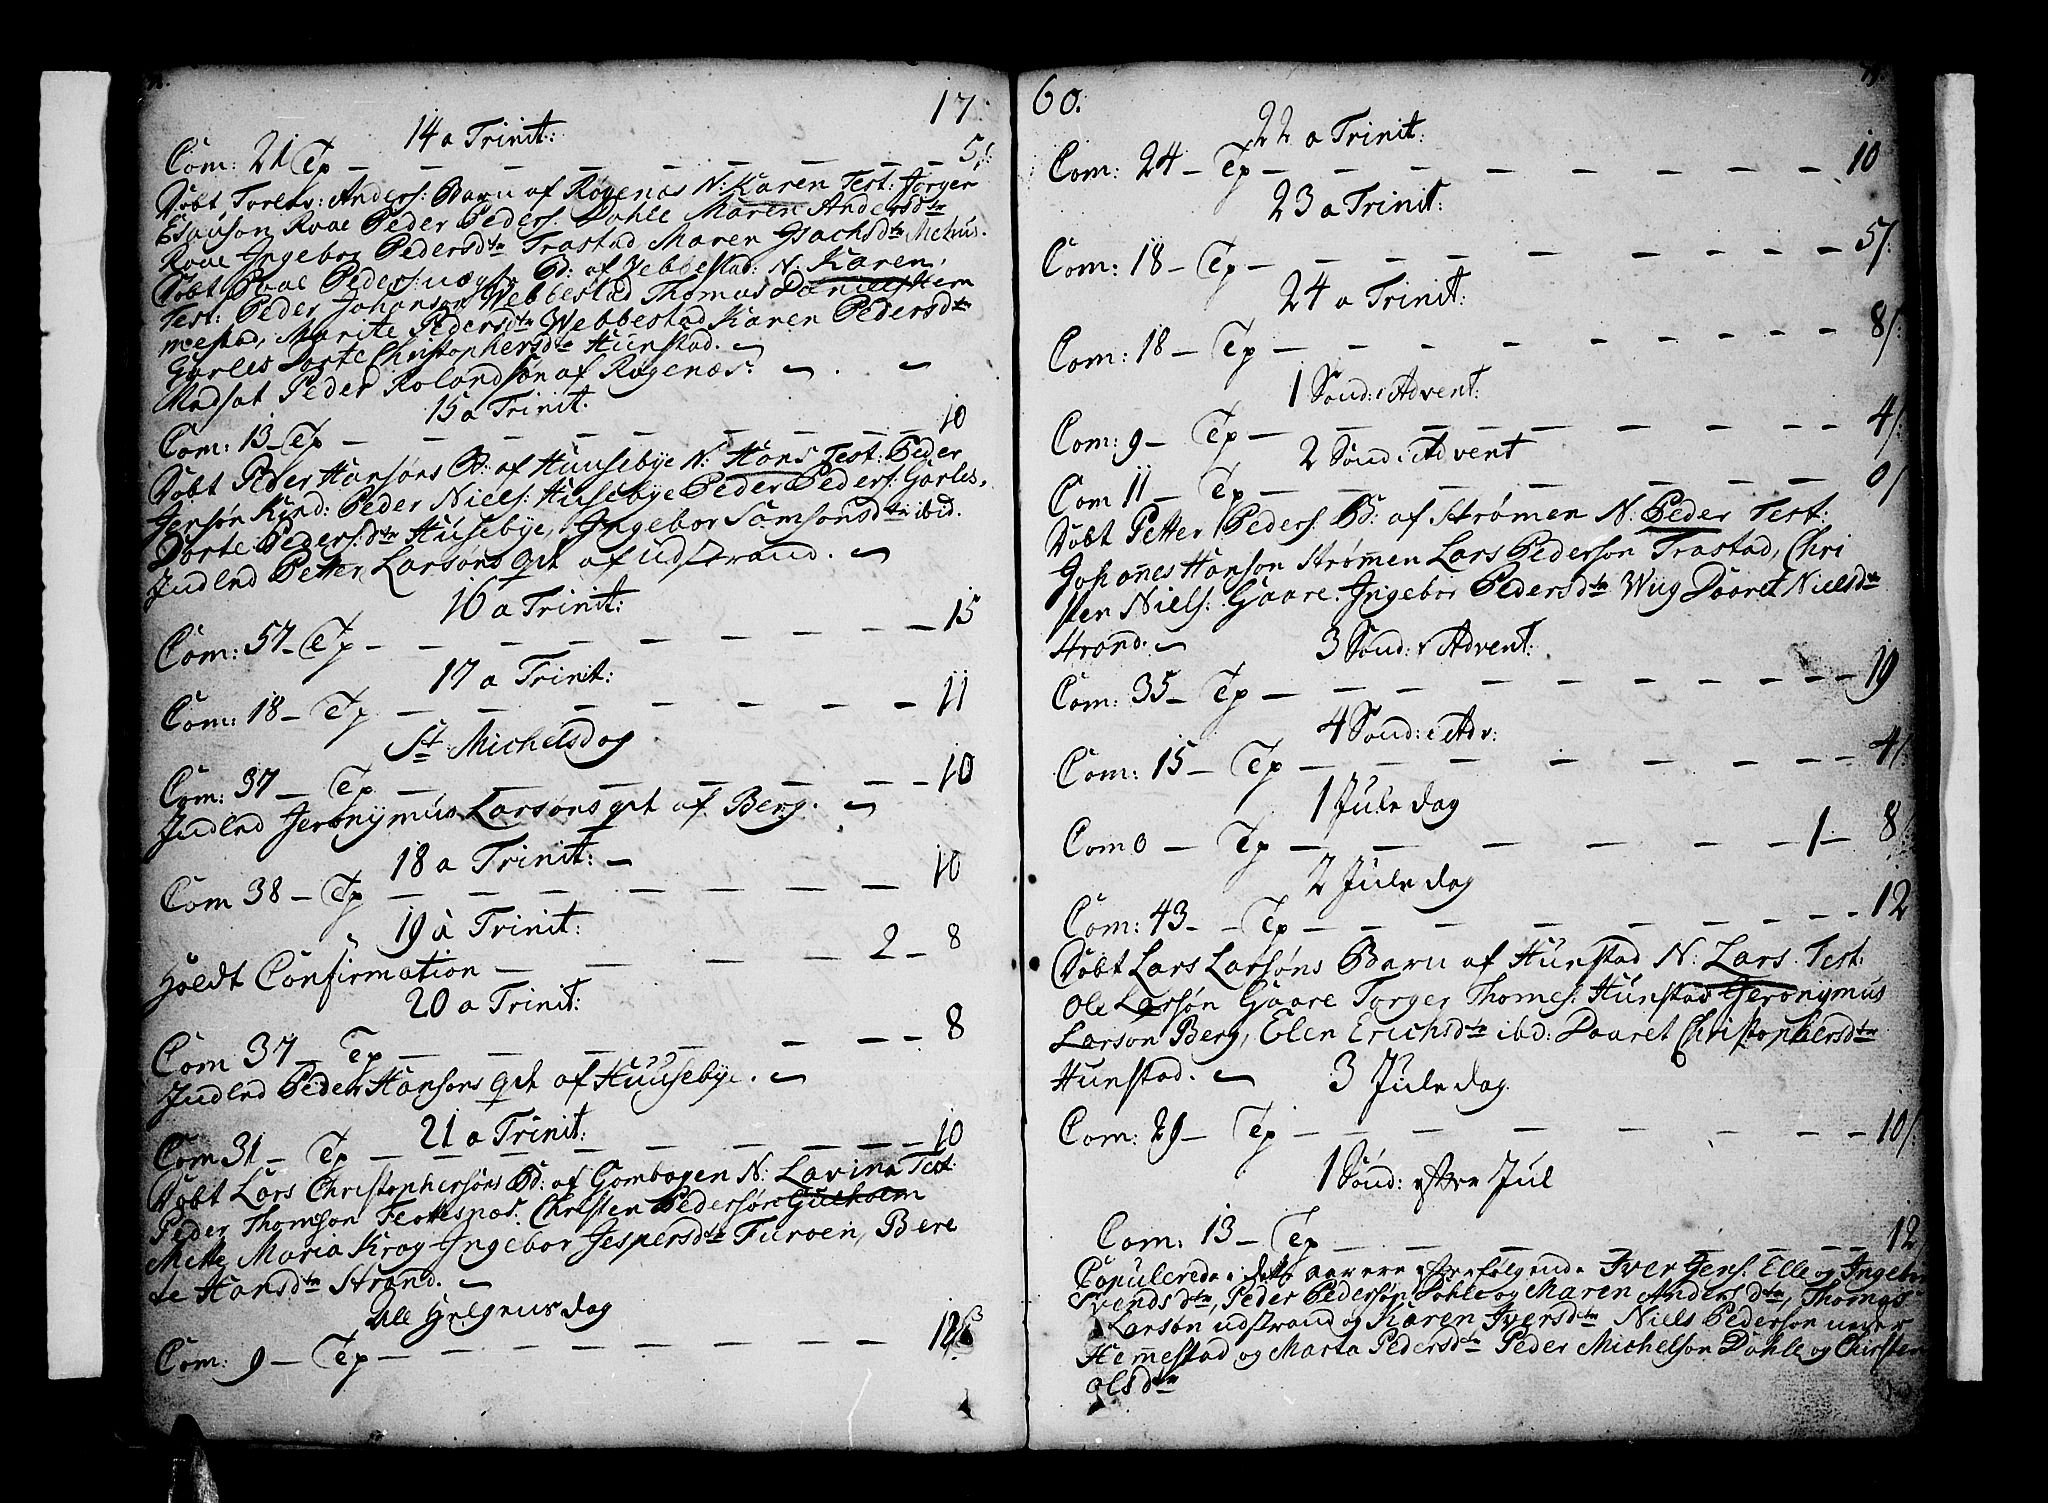 17
14 a Trinit:
Com: 21 Tp — — — — — — — — 5/:
Døbt Torlev: Anders: Barn af Røgenæs N: Karen Test: Torger
Esauson Roae Peder Peders: Dahle Maren Andersdtr
Roae Ingebor Pedersdtr Trastad Maren Isachsdtr Mehus.
Døbt Roae Peders: uægte B: af Vebbestad: N: Karen,
Test: Peder Johanson Webbestad Thomas Daniels Hem
mestad, Marite Pedersdtr Webbestad Karen Pedersdtr
Garles Dorte Christophersdtr Hunstad.
Madsat Peder Rolandsøn af Røgenæs:
15 a Trinit:
Com: 13 Tp — — — — — — — — 10
Døbt Peder Hansøns B: af Huusebye N: Hans Test: Peder
Jensøn Kind: Peder Niels: Husebye Peder Peders: Garles,
Dorte Pedersdtr Husebye, Ingebor Samsonsdtr ibid.
Indled Petter Larsøns qvt af udstrand.
16 a Trinit:
Com: 57 — Tp — — — — — — — — 15
17 a Trinit:
Com: 18 — Tp — — — — — — — 11
St: Michelsdag
Com: 37 — Tp — — — — — — — 10
Indled Jeronymus Larsøns qvt af Berg.
18 a Trinit: —
Com 38 — Tp — — — — — — — 10
19 a Trinit:
Holdt Confirmation — — — — 2 — 8
20 a Trinit:
Com 37 — Tp — — — — — — — 8
Indled Peder Hansons qvt af Huusebye.
21 a Trinit:
Com 31 — Tp — — — — — — — — 10
Døbt Lars Christophersøns B: af Gombogen N: Lavina Test:
Peder Thomson Flottesnæs. Christen Pedersøn Gulholm
Mette Maria Krog Ingebor Jespersdtr Furoen, Bere
te Hansdtr Strand.
Alle Helgenus dag
Com: 9 — Tp — — — — — — — 12
60.
22 a Trinit:
Com: 24 — Tp — — — — — — — — 10
23 a Trinit:
Com: 18 — Tp — — — — — — — — 5/:
24 a Trinit:
Com: 18 — Tp — — — — — — — — 8/:
1 Sønd: i Advent:
Com: 9 — Tp — — — — — — — — 4/:
2 Sønd: i Advent
Com 11 — Tp — — — — — — — — 0/
Døbt Petter Peders: B: af Strømen N: Peder Test:
Johannes Hanson Strømen Lars Pederson Trastad, Chri
sten Niels: Gaare: Ingebor Pedersdtr Wiig Daaret Nielsdtr
Strand. 3 Sønd: i Advent:
Com: 35 — Tp — — — — — — — — 19
4 Sønd: i Adv:
Com: 15 — Tp — — — — — — — — 4/:
1 Jule dag
Com 0 — Tp — — — — — — 1 — 8/:
2 Jule dag
Com: 43 — — Tp — — — — — — — — 12
Døbt Lars Larsøns Barn af Hunstad N: Lars. Test:
Ole Larsøn Gaare Torger Thomes: Hunstad Jeronymus
Larson Berg, Elen Erichsdtr ibd: Daaret Christophersdtr
Hunstad. 3 Jule dag.
Com: 29 — Tp — — — — — — — 10/:
1 Sønd: efter Jul
Com: 13 — Tp — — — — — — — 12/
Copulerede i dette aar ere efterfølgende Iver Jens: Elle og Ingebor
Svendsdtr, Peder Pedersøn Dahle og Maren Andersdtr, Thomas
Larsøn udstrand og Karen Iversdtr Niels Pederson
Hemmestad og Marta Pedersdtr Peder Michelson Dahle og Chirsten
Olsdtr